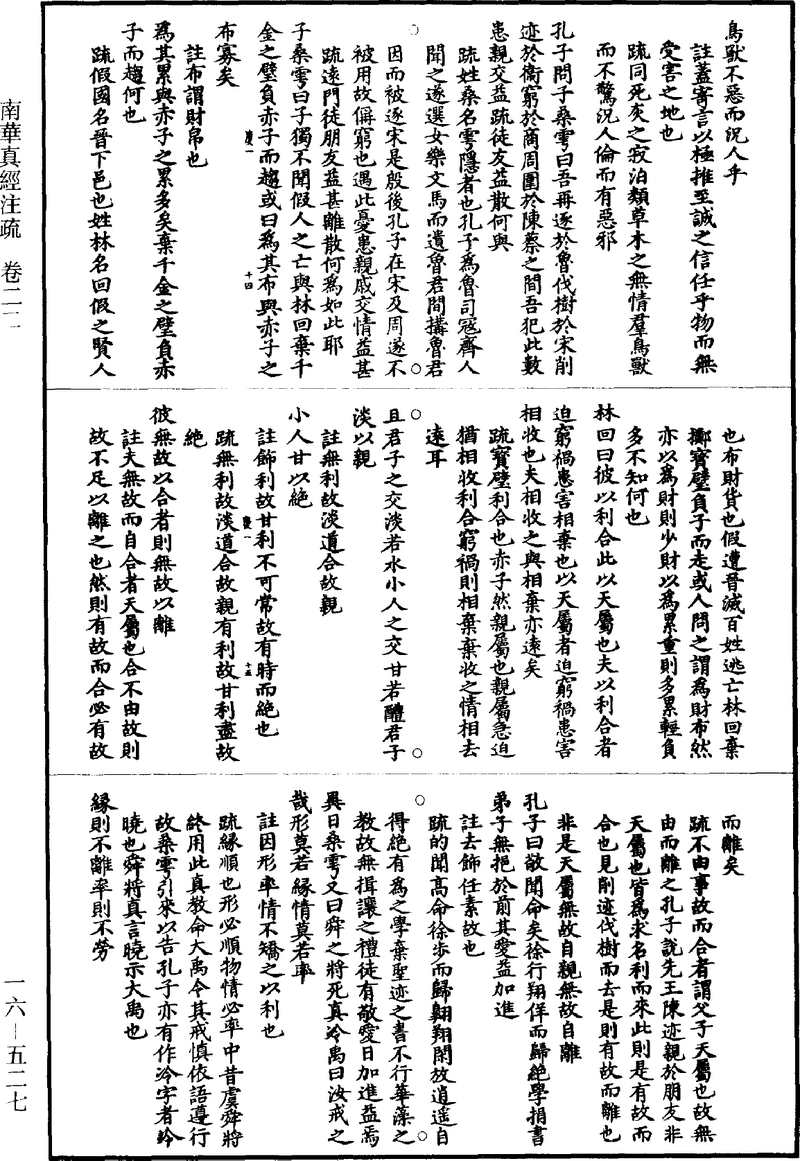 南華真經注疏　卷二二
鳥獸不惡而況人乎
註蓋寄言以極推至誠之信任乎物而無
受害之地也
疏同死灰之寂泊類草木之無情羣鳥獸
而不驚況人倫而有惡邪
孔子問子桑雽曰吾再逐於魯伐樹於宋削
迹於衛窮於商周圍於陳蔡之間吾犯此數
患親交益疏徒友益散何與
疏姓桑名雽隱者也孔子為魯司寇齊人
聞之遂選女樂文馬而遺魯君間搆魯君
因而被逐宋是殷後孔子在宋及周遂不
被用故偁窮也遇此憂患親戚交情益甚
疏遠門徒朋友益甚離散何為如此耶
子桑雽曰子獨不聞假人之亡與林回棄千
金之璧負赤子而趨或曰為其布與赤子之
布寡矣
註布謂財帛也
為其累與赤子之累多矣棄千金之璧負赤
子而趨何也
疏假國名晉下邑也姓林名回假之賢人
也布財貨也假遭晉滅百姓逃亡林回棄
擲寶璧負子而走或人問之謂為財布然
亦以為財則少財以為累重則多累輕負
多不知何也
林回曰彼以利合此以天屬也夫以利合者
迫窮禍患害相棄也以天屬者迫窮禍患害
相收也夫相收之與相棄亦遠矣
疏寶璧利合也赤子然親屬也親屬急迫
猶相收利合窮禍則相棄棄收之情相去
遠耳
且君子之交淡若水小人之交甘若醴君子
淡以親
註無利故淡道合故親
小人甘以絕
註飾利故甘利不可常故有時而絕也
疏無利故淡道合故親有利故甘利盡故
絕
彼無故以合者則無故以離
註夫無故而自合者天屬也合不由故則
故不足以離之也然則有故而合必有故
而離矣
疏不由事故而合者謂父子天屬也故無
由而離之孔子說先王陳迹親於朋友非
天屬也皆為求名利而來此則是有故而
合也見削迹伐樹而去是則有故而離也
非是天屬無故自親無故自離
孔子曰敬聞命矣徐行翔佯而歸絕學捐書
弟子無挹於前其愛益加進
註去飾任素故也
疏的聞高命徐步而歸翱翔閑放逍遥自
得絕有為之學棄聖迹之書不行華藻之
教故無揖讓之禮徒有敬愛日加進益焉
異日桑雽又曰舜之將死真泠禹曰汝戒之
哉形莫若緣情莫若率
註因形率情不矯之以利也
疏緣順也形必順物情必率中昔虞舜將
終用此真教命大禹令其戒慎依語遵行
故桑雽引來以告孔子亦有作泠字者泠
曉也舜將真言曉示大禹也
緣則不離率則不勞
一六—五二七